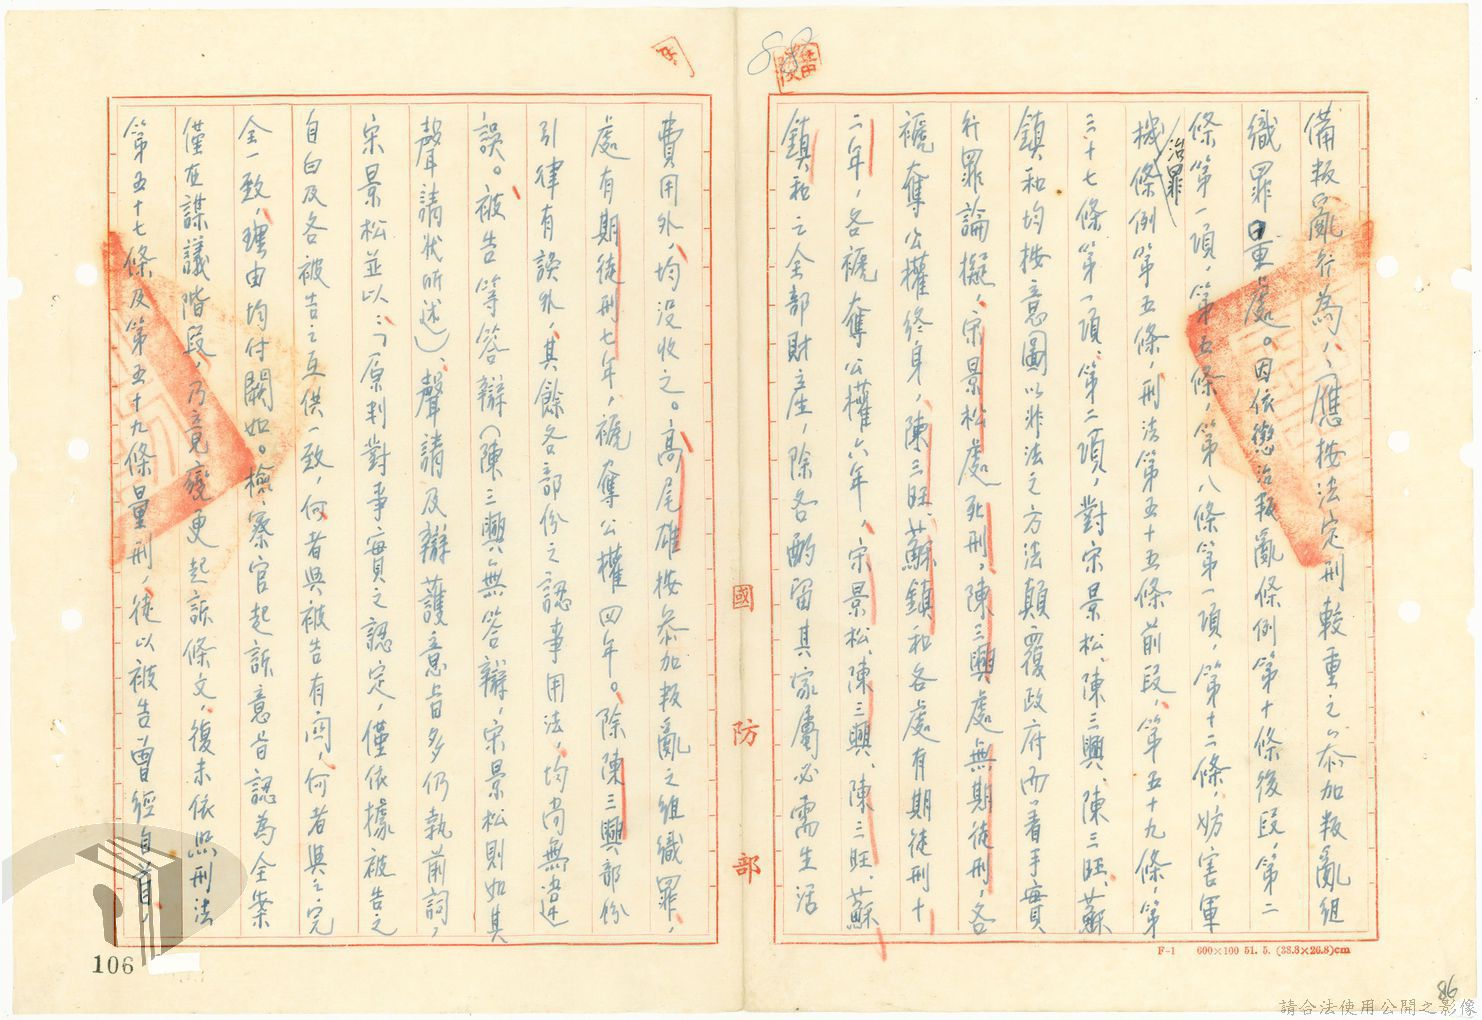 備叛亂行為,應按法定刑較重之參加叛亂組
織罪重處。因依懲治叛亂條例第十條後段,第二
條第一項,第五條,第八條第一項,第十二條,妨害軍
機治罪條例第五條,刑法第五十五條前段,第五十九條,第
三十七條第一項、第二項,對宋景松、陳三興、陳三旺、蘇
鎮和均按意圖以非法之方法顛覆政府而着手實
行罪論擬,宋景松處死刑,陳三興處無期徒刑,各
褫奪公權終身,陳三旺、蘇鎮和各處有期徒刑十
二年,各褫奪公權六年,宋景松、陳三興、陳三旺、蘇
鎮和之全部財產,除各酌留其家屬必需生活
費用外,均沒收之。高尾雄按參加叛亂之組織罪,
處有期徒刑七年,褫奪公權四年。除陳三興部份
引律有誤外,其餘各部份之認事用法,均尚無違
誤。被告等答辯(陳三興無答辯,宋景松則如其
聲請狀所述)、聲請及辯護意旨多仍執前詞,
宋景松並以:「原判對事實之認定,僅依據被告之
自白及各被告之互供一致,何者與被告有関,何者與之完
全一致,理由均付闕如。檢察官起訴意旨認為全案
僅在謀議階段,乃竟變更起訴條文,復未依照刑法
第五十七條及第五十九條量刑,徒以被告曾經自首,
國防部
F-1 600×100 51. 5. (38.8×26.8)cm
106
86
請合法使用公開之影像